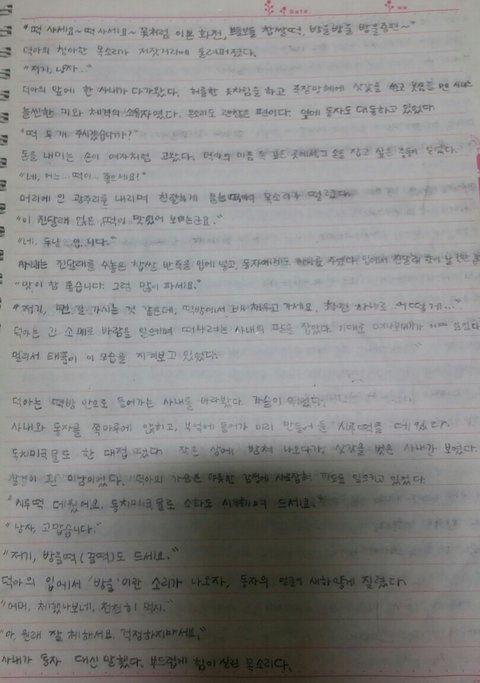 "떡 사세요~ 떡 사세요~ 꽃처럼 이쁜 화전, 찹쌀떡, 방울방울 방울증편~"
덕아의 청아한 목소리가 저잣거리에 울려퍼졌다.
"저기, 낭자.."
덕아의 앞에 한 사내가 다가왔다. 허름한 도차림을 하고 삿갓을
늘씬한 키와 체격의 소유자였다. 목소리도 괜찮은 편이다. 옆에 동자도 대동하고 있었다.
"떡 두 개 주시겠습니까?"
돈을 내미는 손이 여자처럼 고왔다. 덕아의 마음 속 깊은 곳에서 그 손을 잡고 싶은 충동이 일었다.
"네, 어느... 떡이.. 좋으세요?"
머리에 인 광주리를 내리며 친절하게 목소리가 떨렸다.
"이 진달래 얹은 떡이 맛있어 보이는군요."
"네, 두냥.. 입..니다."
사내는 진달래를 수놓은 찹쌀 반죽을 입에 넣고, 동자에게도 주었다. 입에서 진달래 향이
"맛이 참 좋습니다. 그럼 많이 파세요."
"저기, 먼 길 가시는 것 같은데, 떡방에서 가세요, 어떻게..."
덕아는 긴 소매로 바람을 떠나려는 사내의 팔을 잡았다.
멀리서 태풍이 이 모습을 지켜보고 있었다.
덕아는 떡방 안으로 들어가는 사내를 바라봤다. 가슴이
사내와 동자를 쪽마루에 앉히고, 부엌에 들어가 미리 만들어 둔 시루떡을 데웠다.
동치미국물도 한 대접 펐다. 작은 상에 받쳐 나오다가, 삿갓을 벗은 사내가 보였다.
살결이 흰 미남이었다. 덕아의 가슴은 야릇한 감정에 사로잡혀 파도를 일으키고 있었다.
"시루떡 데웠어요. 동치미국물로 소화도 시켜가며 드세요."
"낭자, 고맙습니다."
"저기, 방울떡(꿀떡)도 드세요."
덕아의 입에서 '방울'이란 소리가 나오자, 동자의 얼굴이 새하얗게 질렸다.
"어머, 체했나보네, 천천히 먹지."
"아, 원래 잘 체해서요. 걱정하지마세요."
사내가 동자 대신 말했다. 부드럽게 힘이 실린 목소리다.